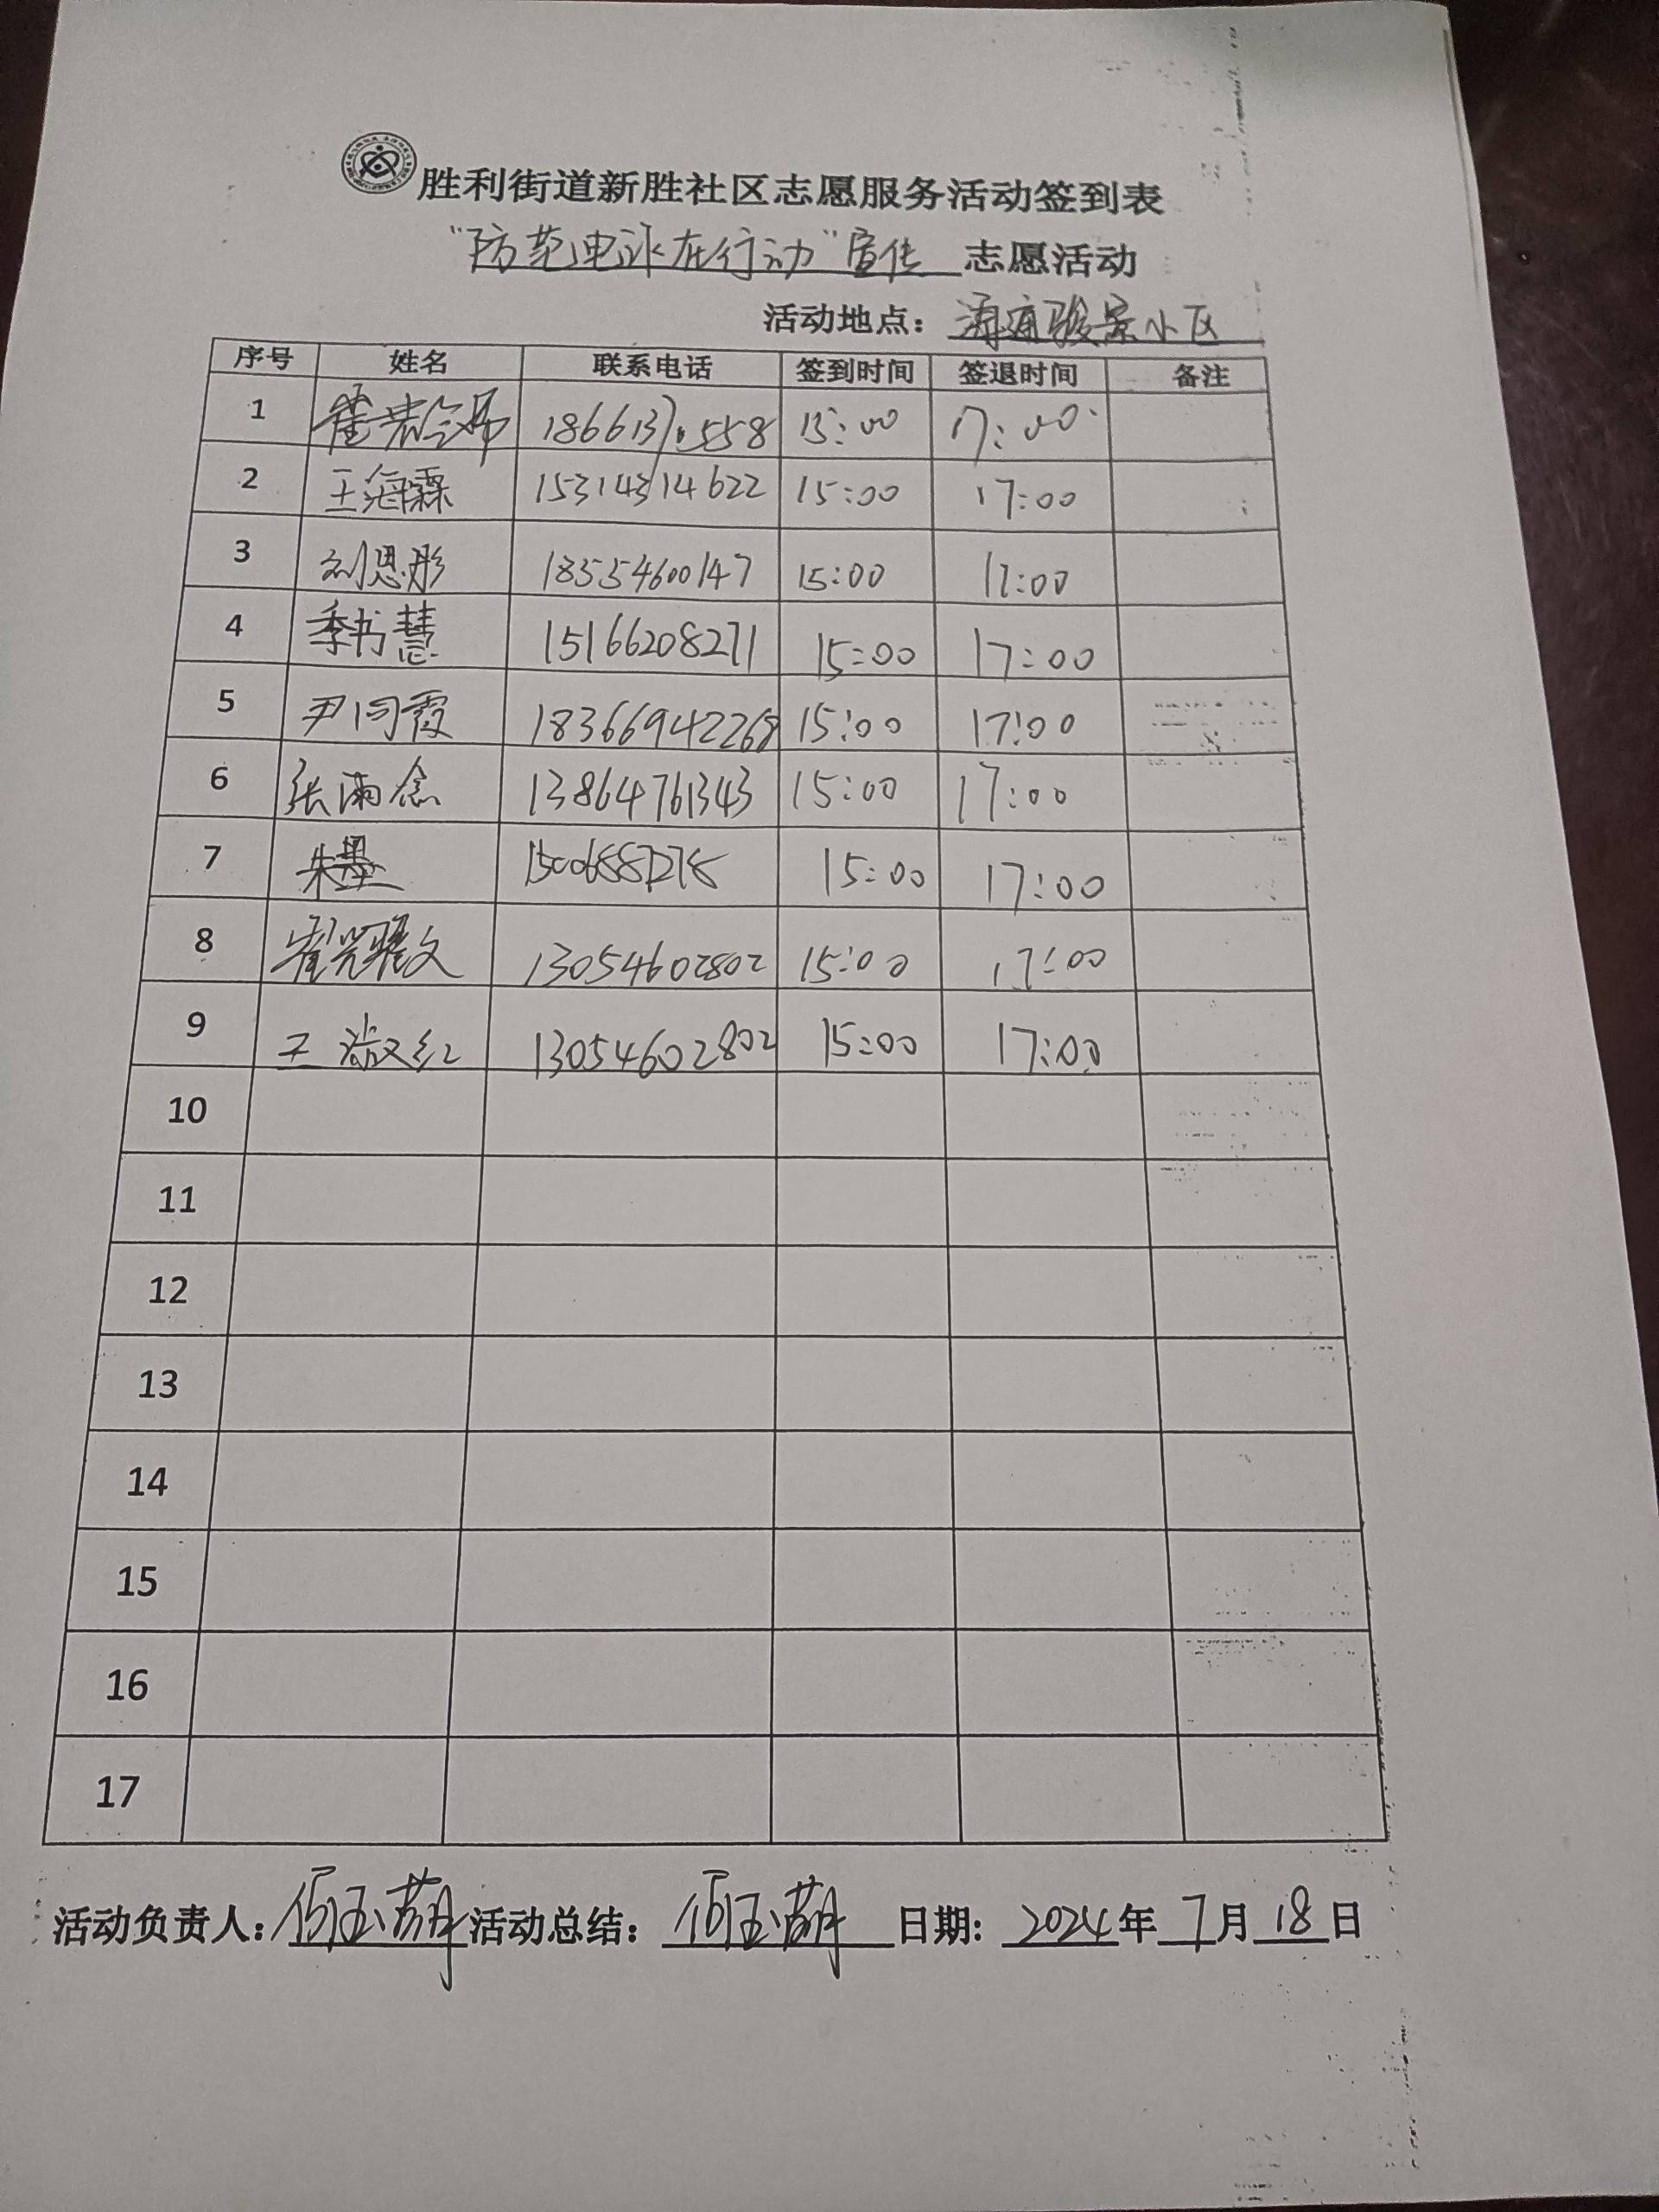 胜利街道新胜社区志愿服务活动签到表
“防范电诈在行动”宣传 志愿活动
活动地点: 海通骏景小区
序号 姓名 联系电话 签到时间 签退时间 备注
1 15:00 17:00
2 王海霖 15314314622 15:00 17:00
3 刘恩彤 18554600147 15:00 17:00
4 季书慧 15166208271 15:00 17:00
5 尹同霞 18366942268 15:00 17:00
6 张雨念 13864761343 15:00 17:00
7 朱墨 15:00 17:00
8 耀文 13054602802 15:00 17:00
9 王淑红 13054602802 15:00 17:00
10
11
12
13
14
15
16
17
活动负责人: 活动总结: 日期: 2024年7月18日